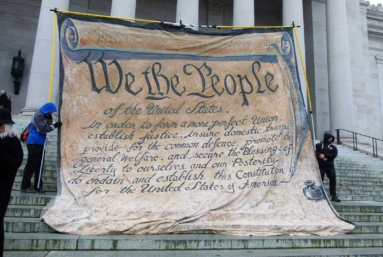 We the People
of the United States,
in order to form a more perfect Union,
establish Justice, insure domestic Tranquility,
provide for the common defence, promote the
general Welfare, and secure the Blessings of
Liberty to ourselves and our Posterity
do ordain and establish this Constitution
for the United States of America